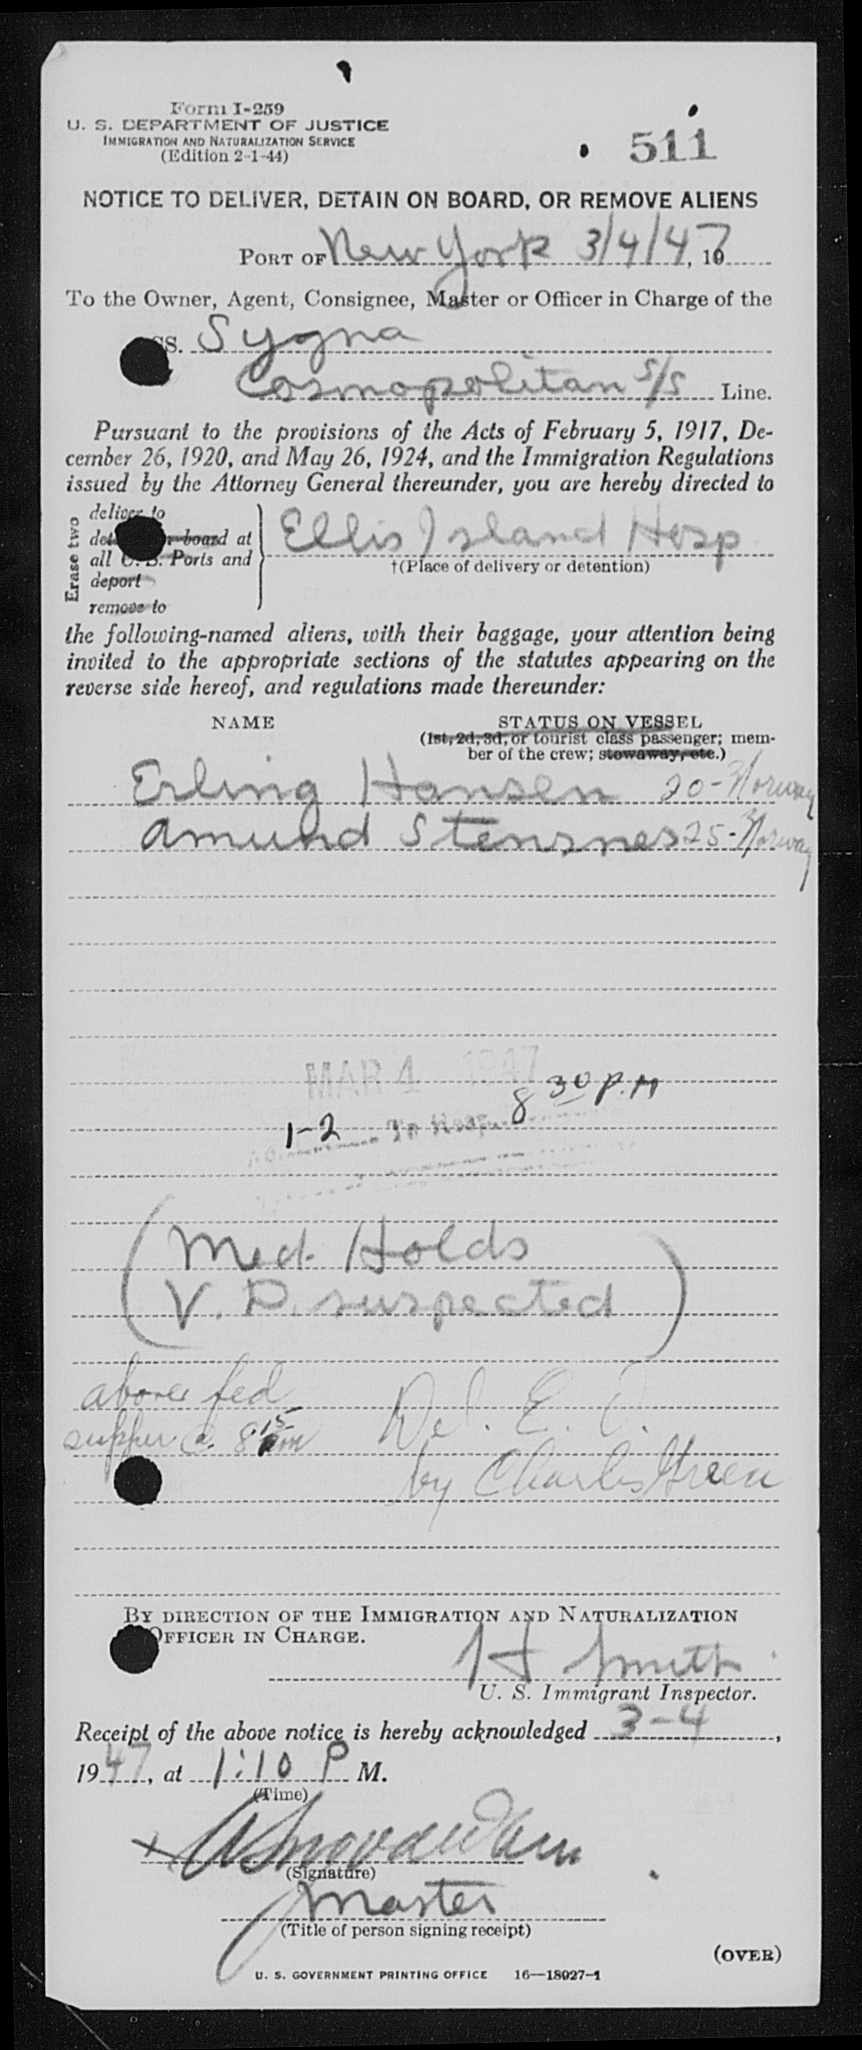 Form I-259
U. S. DEPARTMENT OF JUSTICE
IMMIGRATION AND NATURALIZATION SERVICE
(Edition 2-1-44)
511
NOTICE TO DELIVER, DETAIN ON BOARD, OR REMOVE ALIENS
PORT OF New York 3/4/47, 19
To the Owner, Agent, Consignee, Master or Officer in Charge of the
SS. Sygna
Cosmopolitan S/S Line.
Pursuant to the provisions of the Acts of February 5, 1917, De-
cember 26, 1920, and May 26, 1924, and the Immigration Regulations
issued by the Attorney General thereunder, you are hereby directed to
Erase two
deliver to
board at
all U. S. Ports and
deport
remove to
Ellis Island Hosp
†(Place of delivery or detention)
the following-named aliens, with their baggage, your attention being
invited to the appropriate sections of the statutes appearing on the
reverse side hereof, and regulations made thereunder:
NAME STATUS ON VESSEL
(1st, 2d, 3d, or tourist class passenger; mem-
ber of the crew; stowaway, etc.)
Erling Hansen 20-Norway
Amund Stensnes 25-Norway
MAR 4 1947
8 30 P.M
1-2 To Hosp.
(Med. Holds
V. D. suspected)
above fed
supper @ 8 15 pm
Del. E. I.
by Charles Green
BY DIRECTION OF THE IMMIGRATION AND NATURALIZATION
OFFICER IN CHARGE.
H Smith
U. S. Immigrant Inspector.
Receipt of the above notice is hereby acknowledged 3-4,
1947, at 1:10 P M.
(Time)
x
(Signature)
Master
(Title of person signing receipt)
(OVER)
U. S. GOVERNMENT PRINTING OFFICE 16—18027-1